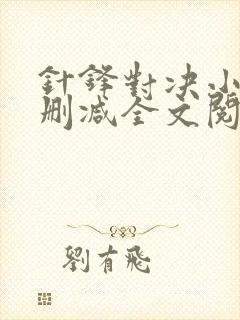 針鋒對決小
刪減全文閱
劉有飛